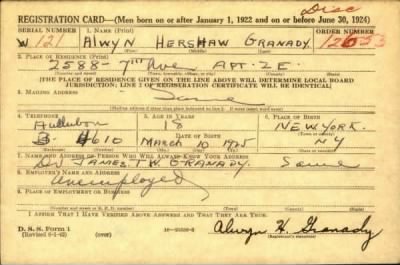 Disc
REGISTRATION CARD—(Men born on or after January 1, 1922 and on or before June 30, 1924)
SERIAL NUMBER 1. NAME (Print) ORDER NUMBER
W 121 Alwyn HERSHAW GRANADY
2. PLACE OF RESIDENCE (Print)
2588- 7th Ave APT. 2E.
[THE PLACE OF RESIDENCE GIVEN ON THE LINE ABOVE WILL DETERMINE LOCAL BOARD
JURISDICTION; LINE 2 OF REGISTRATION CERTIFICATE WILL BE IDENTICAL]
3. MAILING ADDRESS
Same
[Mailing address if other than place indicated on line 2. If same insert word same]
4. TELEPHONE 5. AGE IN YEARS 6. PLACE OF BIRTH
Audubon 18 NEW YORK
DATE OF BIRTH
3- 4610 MARCH 10 1925 NY
7. NAME AND ADDRESS OF PERSON WHO WILL ALWAYS KNOW YOUR ADDRESS
Dr. JAMES T.W. GRANADY. Same
8. EMPLOYER'S NAME AND ADDRESS
Unemployed
9. PLACE OF EMPLOYMENT OR BUSINESS
I AFFIRM THAT I HAVE VERIFIED ABOVE ANSWERS AND THAT THEY ARE TRUE.
D. S. S. Form 1
(Revised 6-1-42)
Alwyn H. Granady
(Registrant's signature)